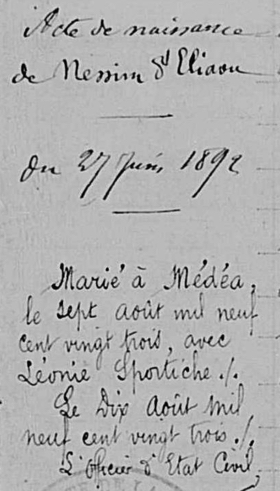 Acte de naissance
de Nessim Eliaou
du 27 Juin 1892
Marié à Médéa,
le sept août mil neuf
cent vingt trois, avec
Léonie Sportiche ./.
Le Dix août mil
neuf cent vingt trois ./.
L'Officier d'Etat Civil,